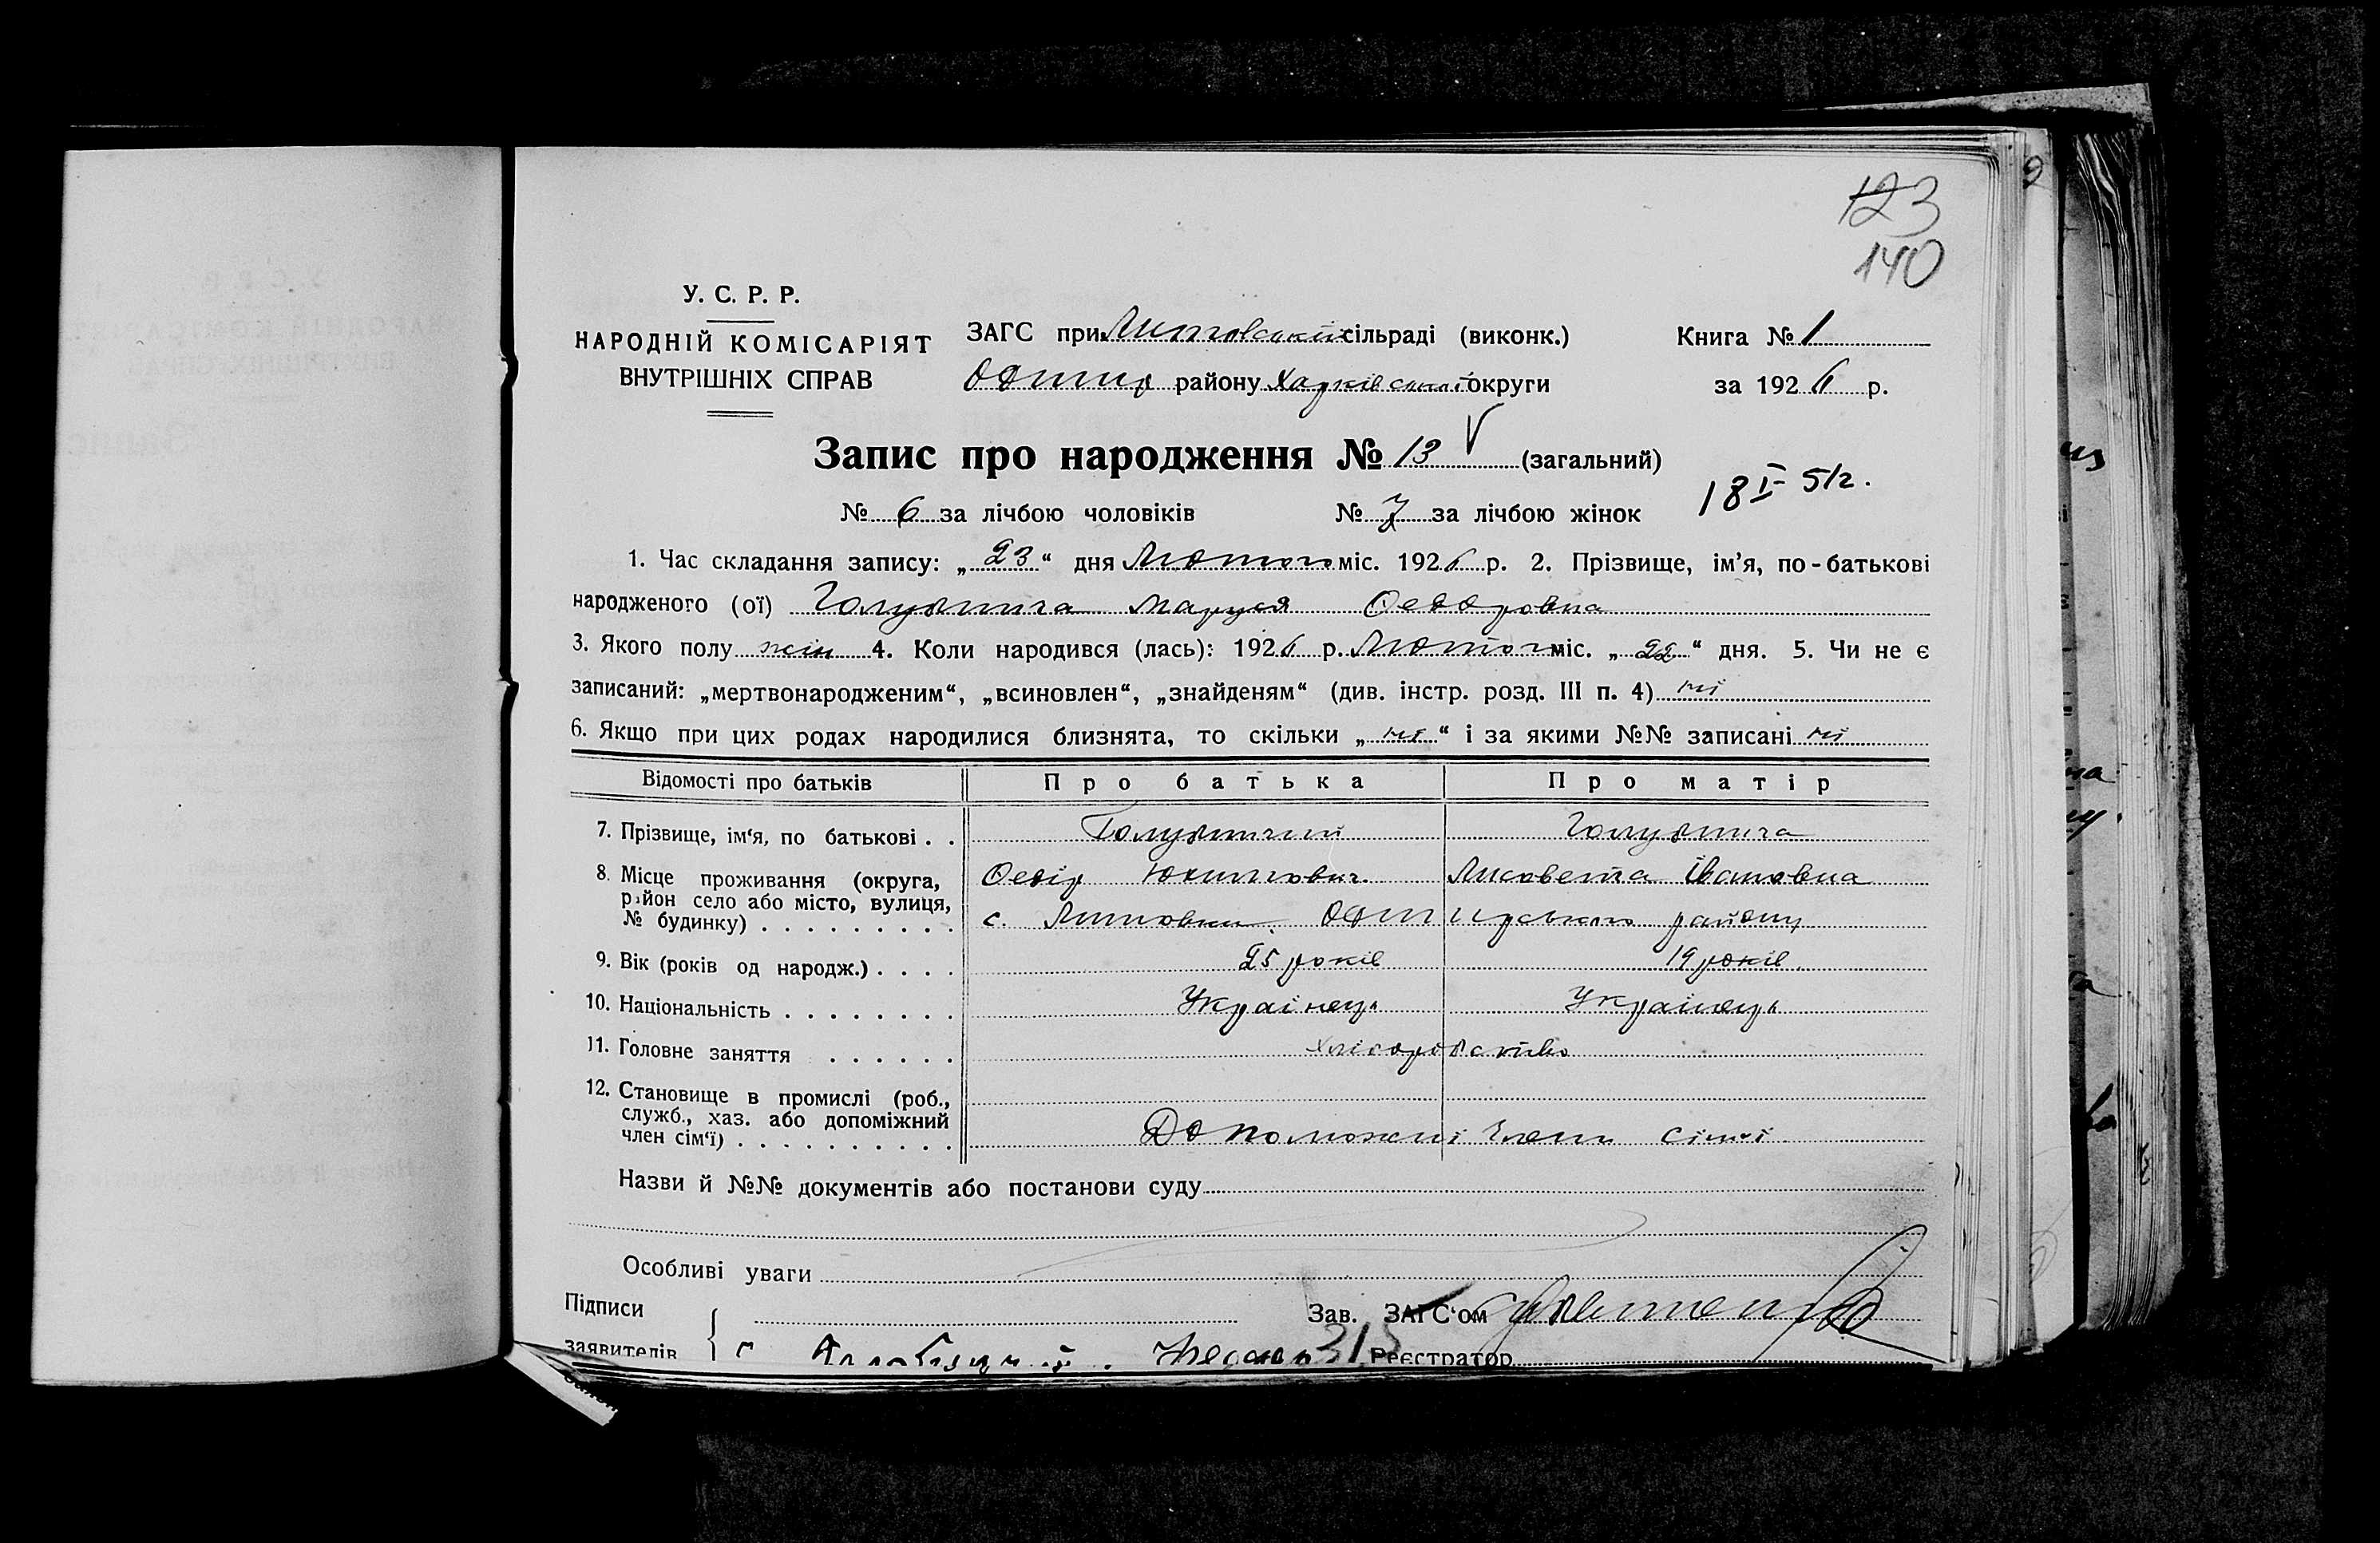 123
140
У. С. Р. Р.
НАРОДНІЙ КОМІСАРІЯТ
ВНУТРІШНІХ СПРАВ
ЗАГС при Литовській сільраді (виконк.)
району Харківської округи
Книга № 1
за 1926 р.
Запис про народження № 13 (загальний)
№ 6 за лічбою чоловіків № 7 за лічбою жінок
18 I 51г.
1. Час складання запису: „23“ дня Лютого міс. 1926 р. 2. Прізвище, ім’я, по-батькові
народженого (ої) Маруся Федоровна
3. Якого полу жін 4. Коли народився (лась): 1926 р. Лютого міс. „22“ дня. 5. Чи не є
записаний: „мертвонародженим“, „всиновлен“, „знайденям“ (див. інстр. розд. III п. 4) ні
6. Якщо при цих родах народилися близнята, то скільки „ні“ і за якими №№ записані ні
Відомості про батьків Про батька Про матір
7. Прізвище, ім‘я, по батькові . .
8. Місце проживання (округа,
район село або місто, вулиця,
№ будинку) . . . . . . . . .
Федір Юхимович Лисовета Івановна
с. Литовки району
9. Вік (років од народж.) . . . . 25 років 19 років.
10. Національність . . . . . . . . Українець Українець
11. Головне заняття . . . . . . Хліборобство
12. Становище в промислі (роб.,
служб., хаз. або допоміжний
член сім‘ї) . . . . . . . . . . Допоможні члени сімї
Назви й №№ документів або постанови суду
Особливі уваги
Підписи
заявителів
Зав. ЗАГС‘ом
315
Реєстратор